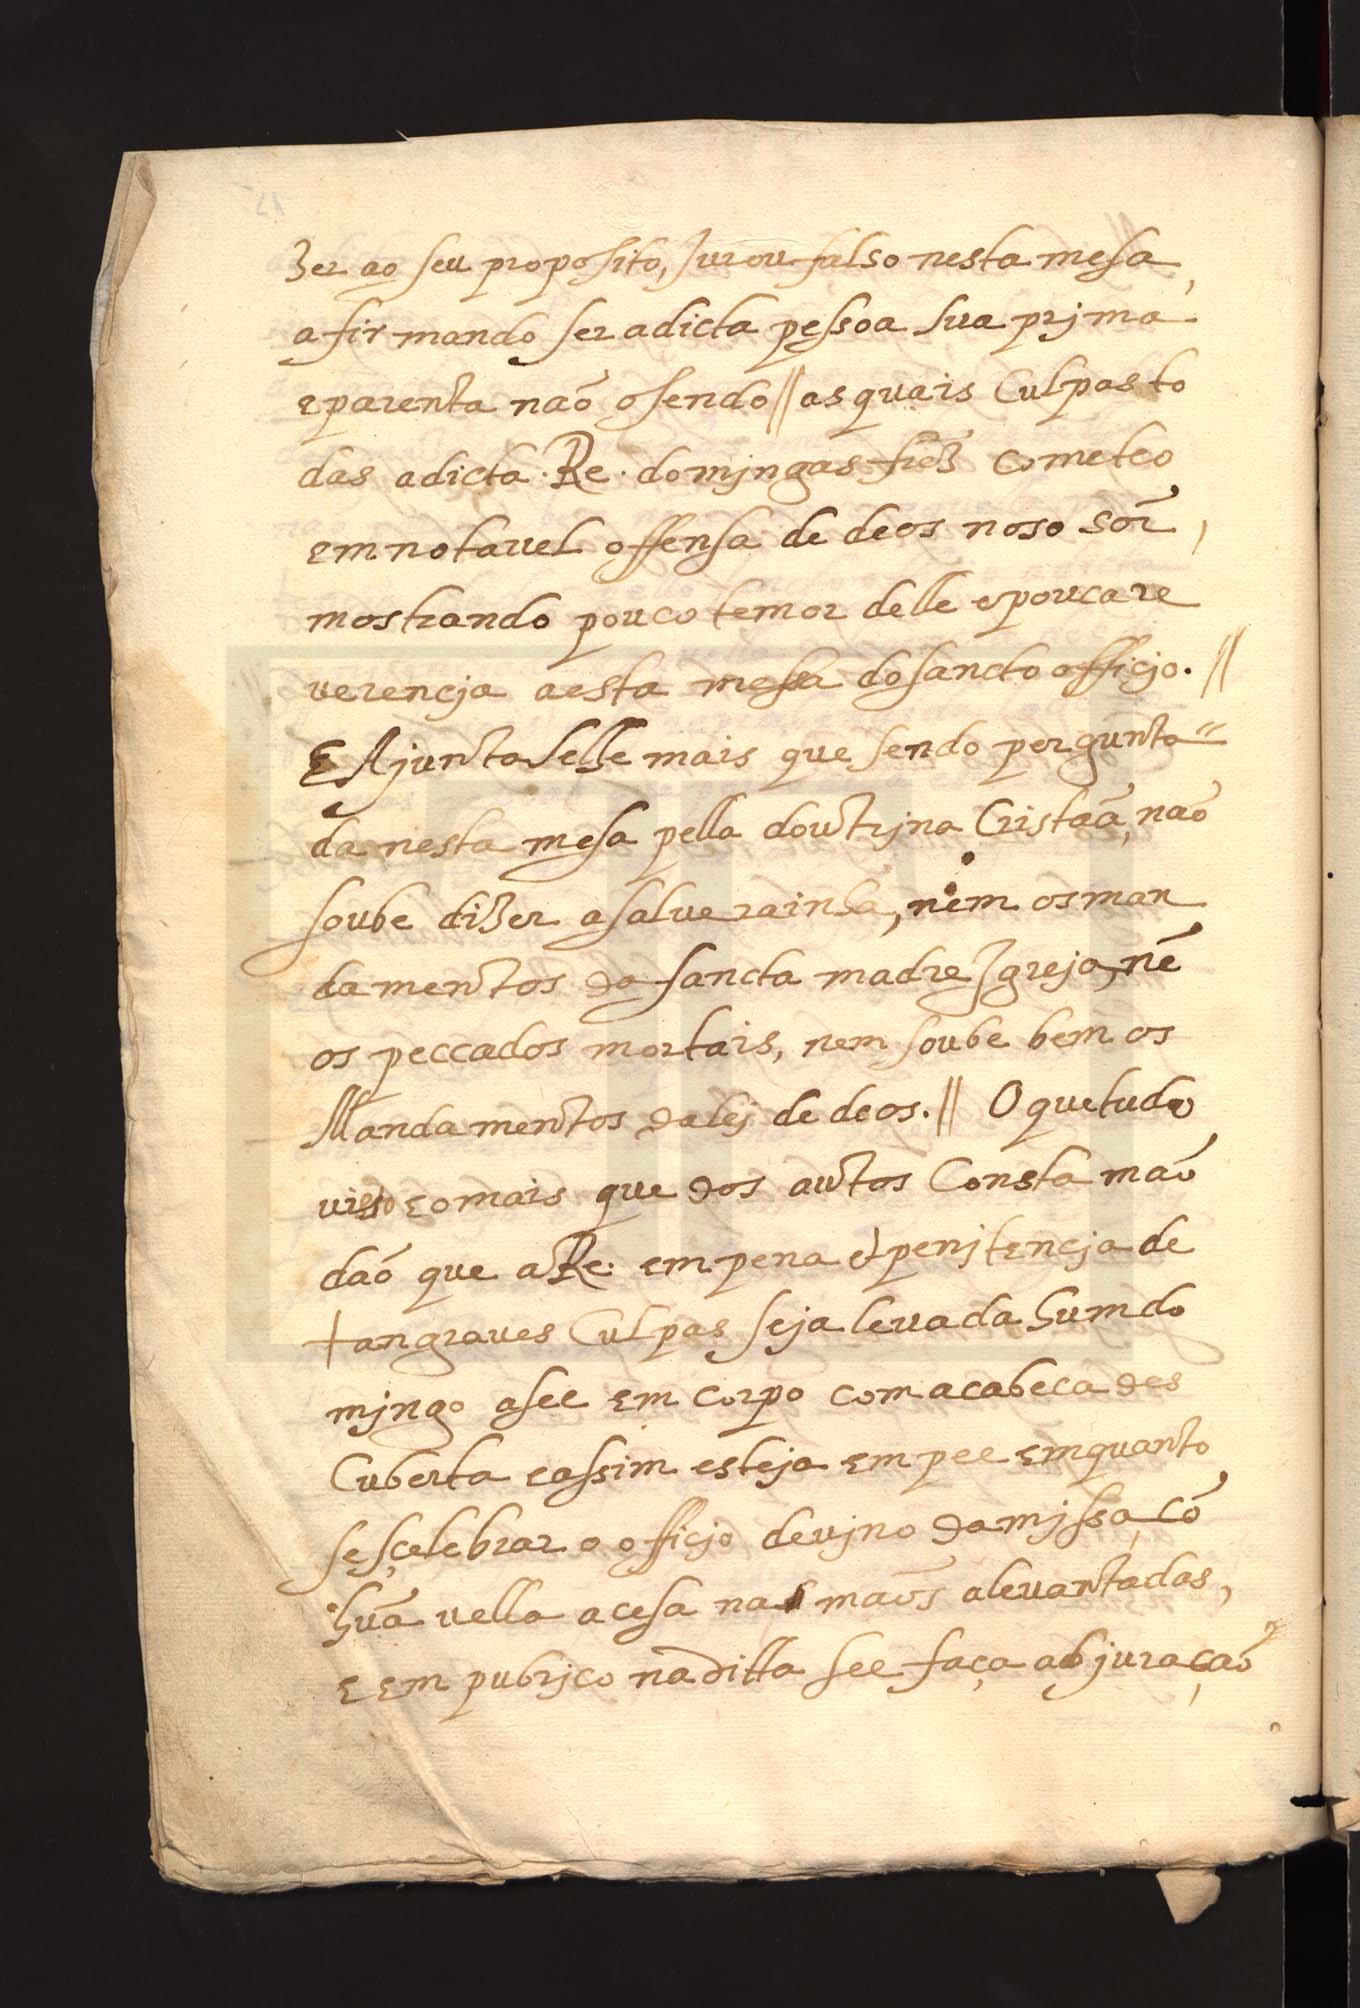 zer ao seu proposito, Jurou falso nesta mesa,
afirmando ser a dicta pessoa sua prjma
e parenta naõ o sendo // as quais Culpas to
das a dicta .Re. domjngas frz̃ cometeo
em notavel offensa de deos noso sõr,
mostrando pouco temor delle e pouca re
verencja a esta mesa do sancto officjo. //
E Ajuntaselhe mais que sendo pergunta=
da nesta mesa pella doutrjna Cristaã, naõ
soube dizer a salue rainha, nem os man
damentos da sancta madre Igreja, nẽ
os peccados mortais, nem soube bem os
Mandamentos da lej de deos. // O que tudo
visto e o mais que dos autos Consta maõ
daõ que a Re. em pena & penjtencja de
tan graues Culpas seja levada hum do
mjngo a see em corpo com a cabeca des
Cuberta e assim esteja em pee emquanto
se scelebrar o officjo devjno da mjssa, cõ
huã vella acesa nas maõs alevantadas,
e em pubrjco na ditta see faça abjuraçaõ